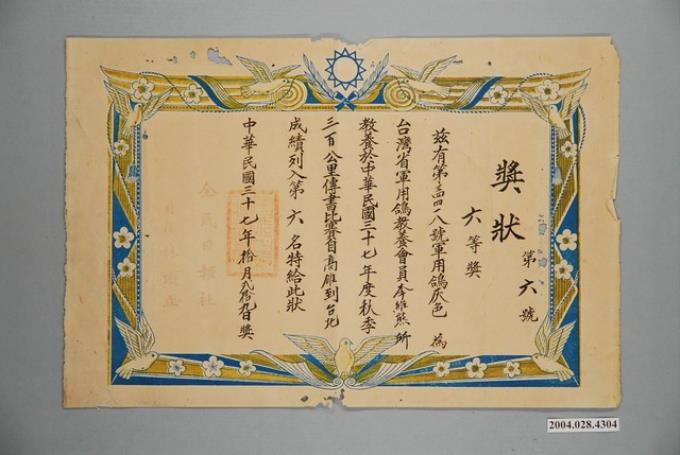 獎狀
第六號
六等獎
茲有第三四四八號軍用鴿灰色為
台灣省軍用鴿教養會員李維熊所
教養於中華民國三十七年度秋季
三百公里傳書比賽自高雄到台北
成績列入第六名特給此狀
中華民國三十七年拾月貳拾九日獎
全民日報社
2004.028.4304